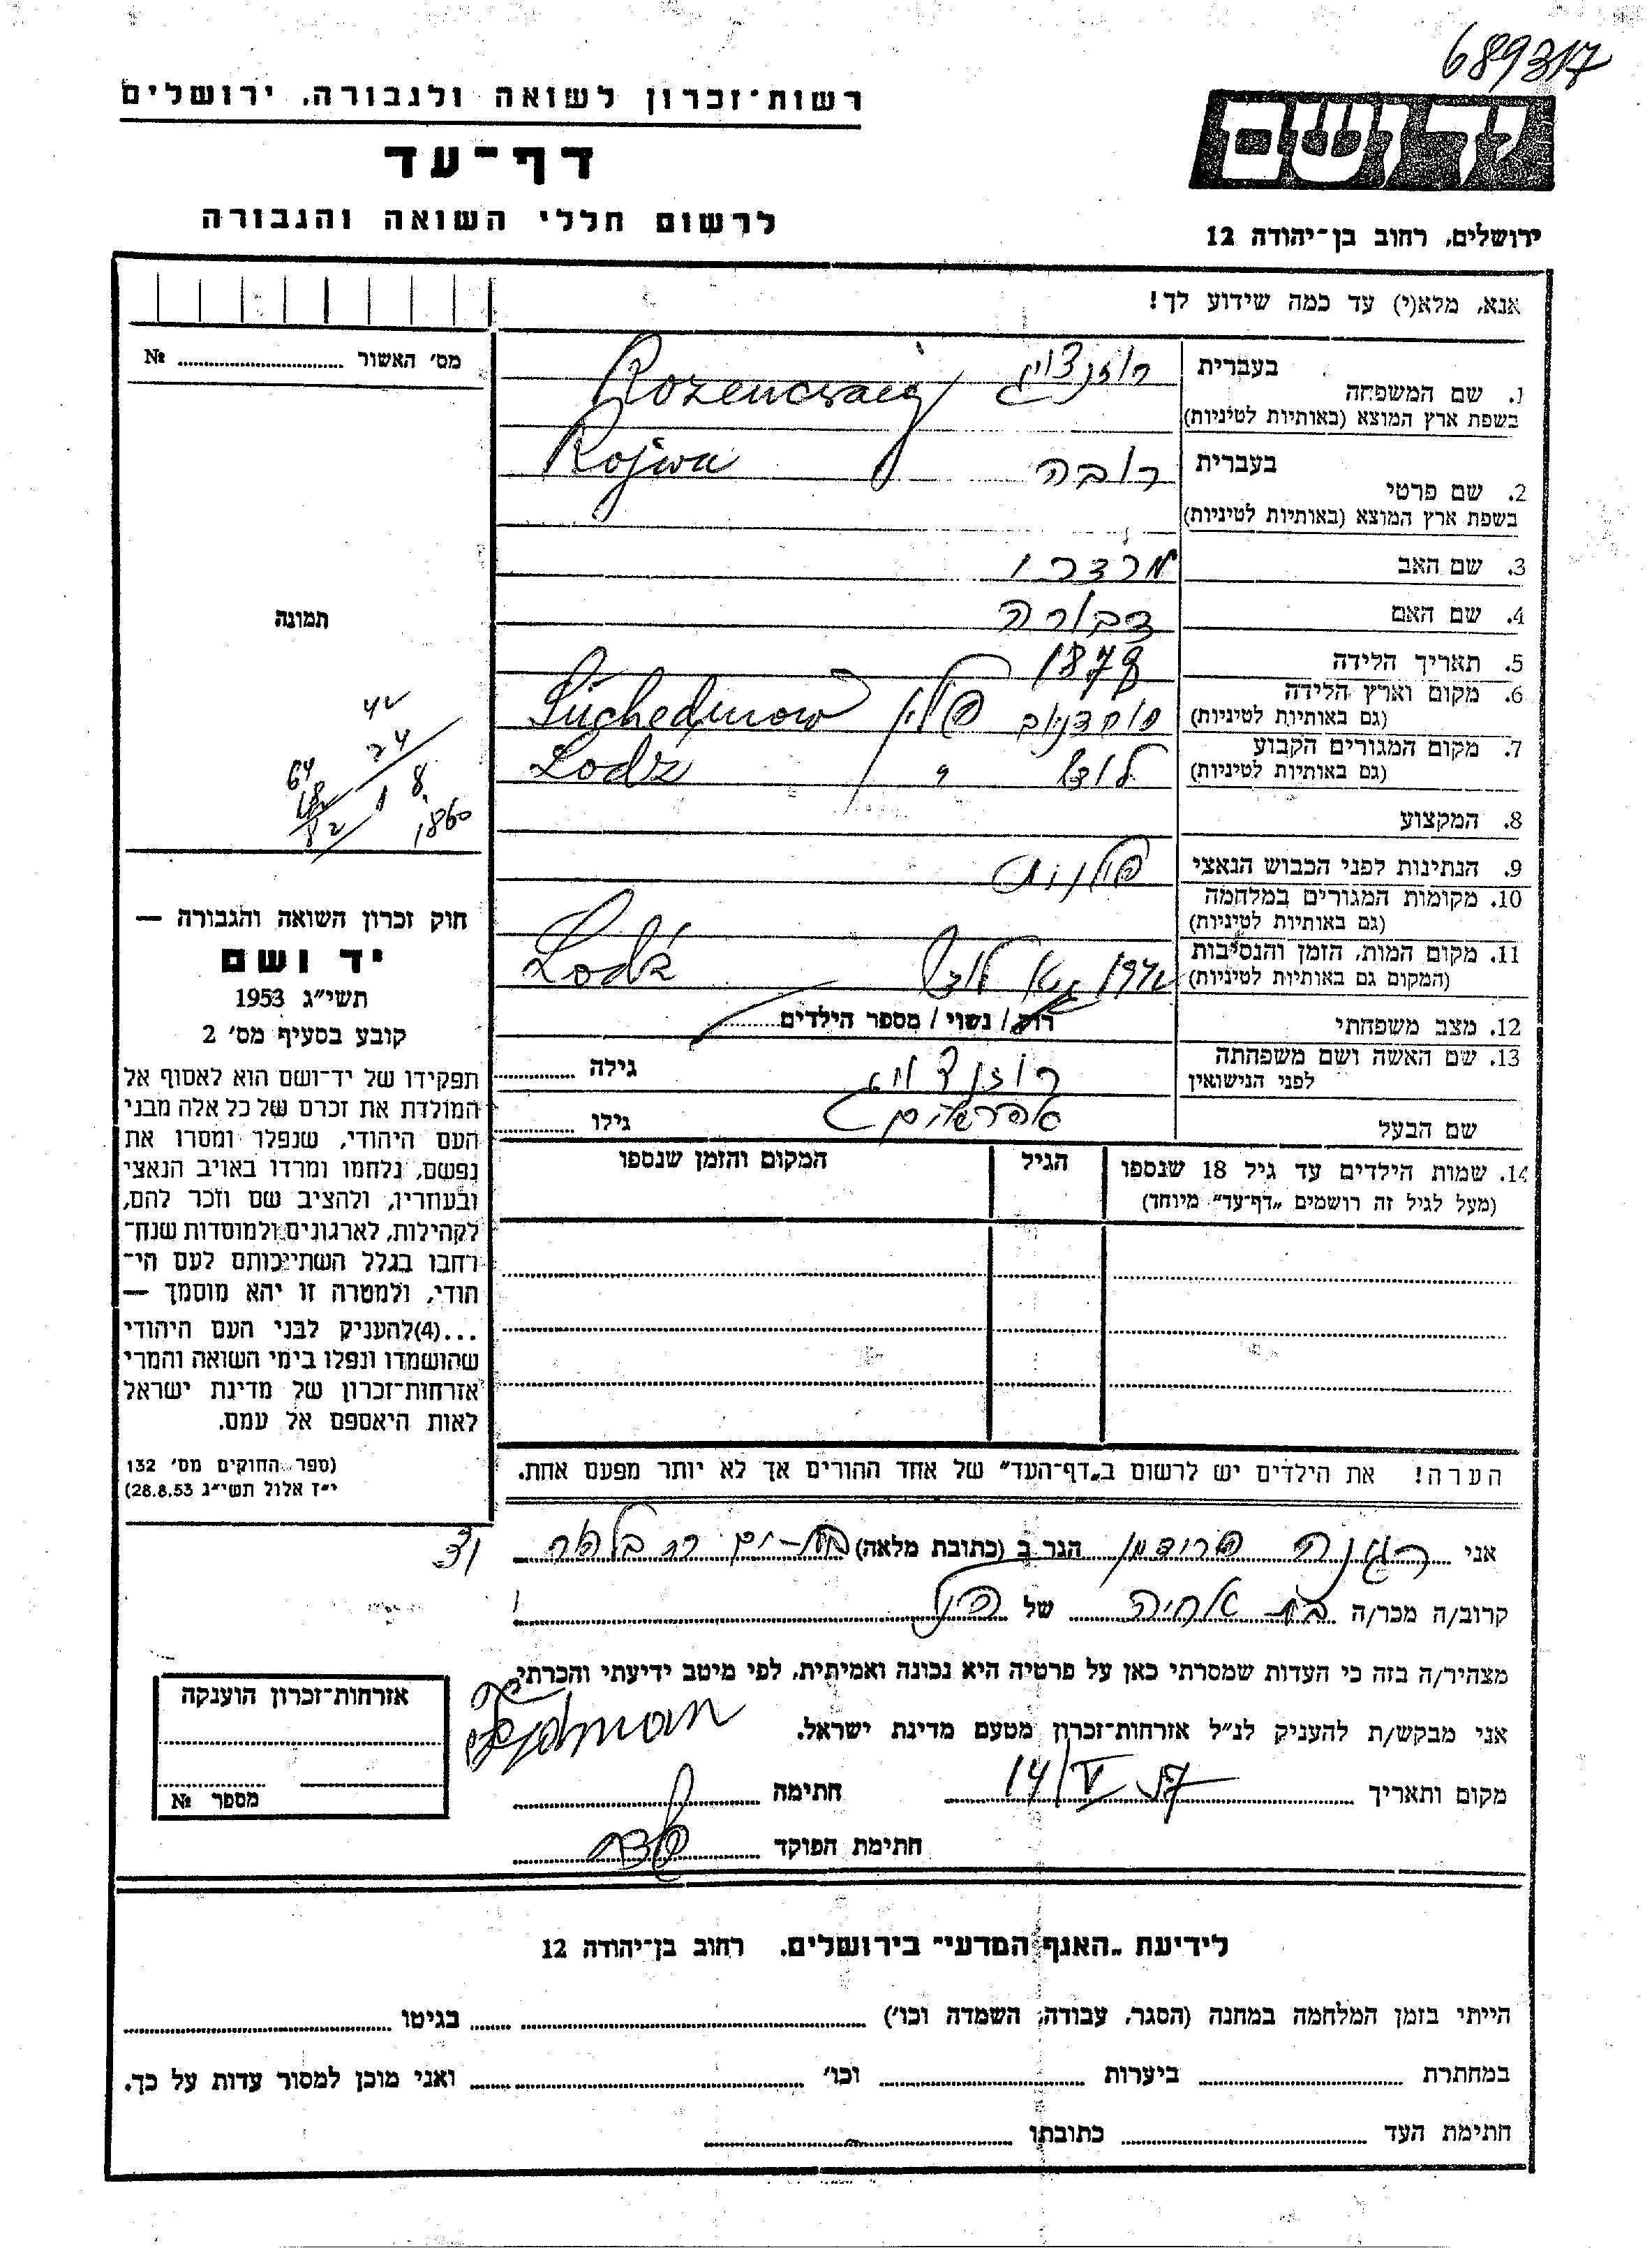 689317
רשות־זכרון לשואה ולגבורה, ירושלים
דף־עד
לרשום חללי השואה והגבורה
יד ושם
ירושלים, רחוב בן־יהודה 12
אנא, מלא(י) עד כמה שידוע לך!
מס׳ האשור № ..........
1. שם המשפחה בעברית רוזנצויג
בשפת ארץ המוצא (באותיות לטיניות) Rozencwaig
2. שם פרטי בעברית
בשפת ארץ המוצא (באותיות לטיניות)
3. שם האב מרדכי
4. שם האם דבורה
5. תאריך הלידה
6. מקום וארץ הלידה פולין
(גם באותיות לטיניות)
7. מקום המגורים הקבוע לודז׳ " Lodz
(גם באותיות לטיניות)
8. המקצוע
9. הנתינות לפני הכבוש הנאצי פולנית
10. מקומות המגורים במלחמה
(גם באותיות לטיניות)
11. מקום המות, הזמן והנסיבות גטו לודז׳ Lodz
(המקום גם באותיות לטיניות)
12. מצב משפחתי רווק / נשוי / מספר הילדים ..........
13. שם האשה ושם משפחתה רוזנצויג גילה ..........
לפני הנישואין
שם הבעל אפרשים גילו ..........
תמונה
1860
חוק זכרון השואה והגבורה —
יד ושם
תשי״ג 1953
קובע בסעיף מס׳ 2
תפקידו של יד־ושם הוא לאסוף אל
המולדת את זכרם של כל אלה מבני
העם היהודי, שנפלו ומסרו את
נפשם, נלחמו ומרדו באויב הנאצי
ובעוזריו, ולהציב שם וזכר להם,
לקהילות, לארגונים ולמוסדות שנח־
רבו בגלל השתייכותם לעם הי־
הודי, ולמטרה זו יהא מוסמך —
...(4)להעניק לבני העם היהודי
שהושמדו ונפלו בימי השואה והמרי
אזרחות־זכרון של מדינת ישראל
לאות היאספם אל עמם.
(ספר החוקים מס׳ 132
י״ז אלול תשי״ג 28.8.53)
14. שמות הילדים עד גיל 18 שנספו הגיל המקום והזמן שנספו
(מעל לגיל זה רושמים „דף־עד״ מיוחד)
הערה! את הילדים יש לרשום ב„דף־העד״ של אחד ההורים אך לא יותר מפעם אחת.
אני פרידמן הגר ב (כתובת מלאה) בת-ים
קרוב/ה מכר/ה בת אחיה של הנ״ל
מצהיר/ה בזה כי העדות שמסרתי כאן על פרטיה היא נכונה ואמיתית, לפי מיטב ידיעתי והכרתי.
אני מבקש/ת להעניק לנ״ל אזרחות־זכרון מטעם מדינת ישראל.
מקום ותאריך 14/V 57 חתימה
חתימת הפוקד
אזרחות־זכרון הוענקה
מספר №
לידיעת „האגף המדעי״ בירושלים, רחוב בן־יהודה 12
הייתי בזמן המלחמה במחנה (הסגר, עבודה, השמדה וכו׳) .......... בגיטו ..........
במחתרת .......... ביערות .......... וכו׳ .......... ואני מוכן למסור עדות על כך.
חתימת העד .......... כתובתו ..........